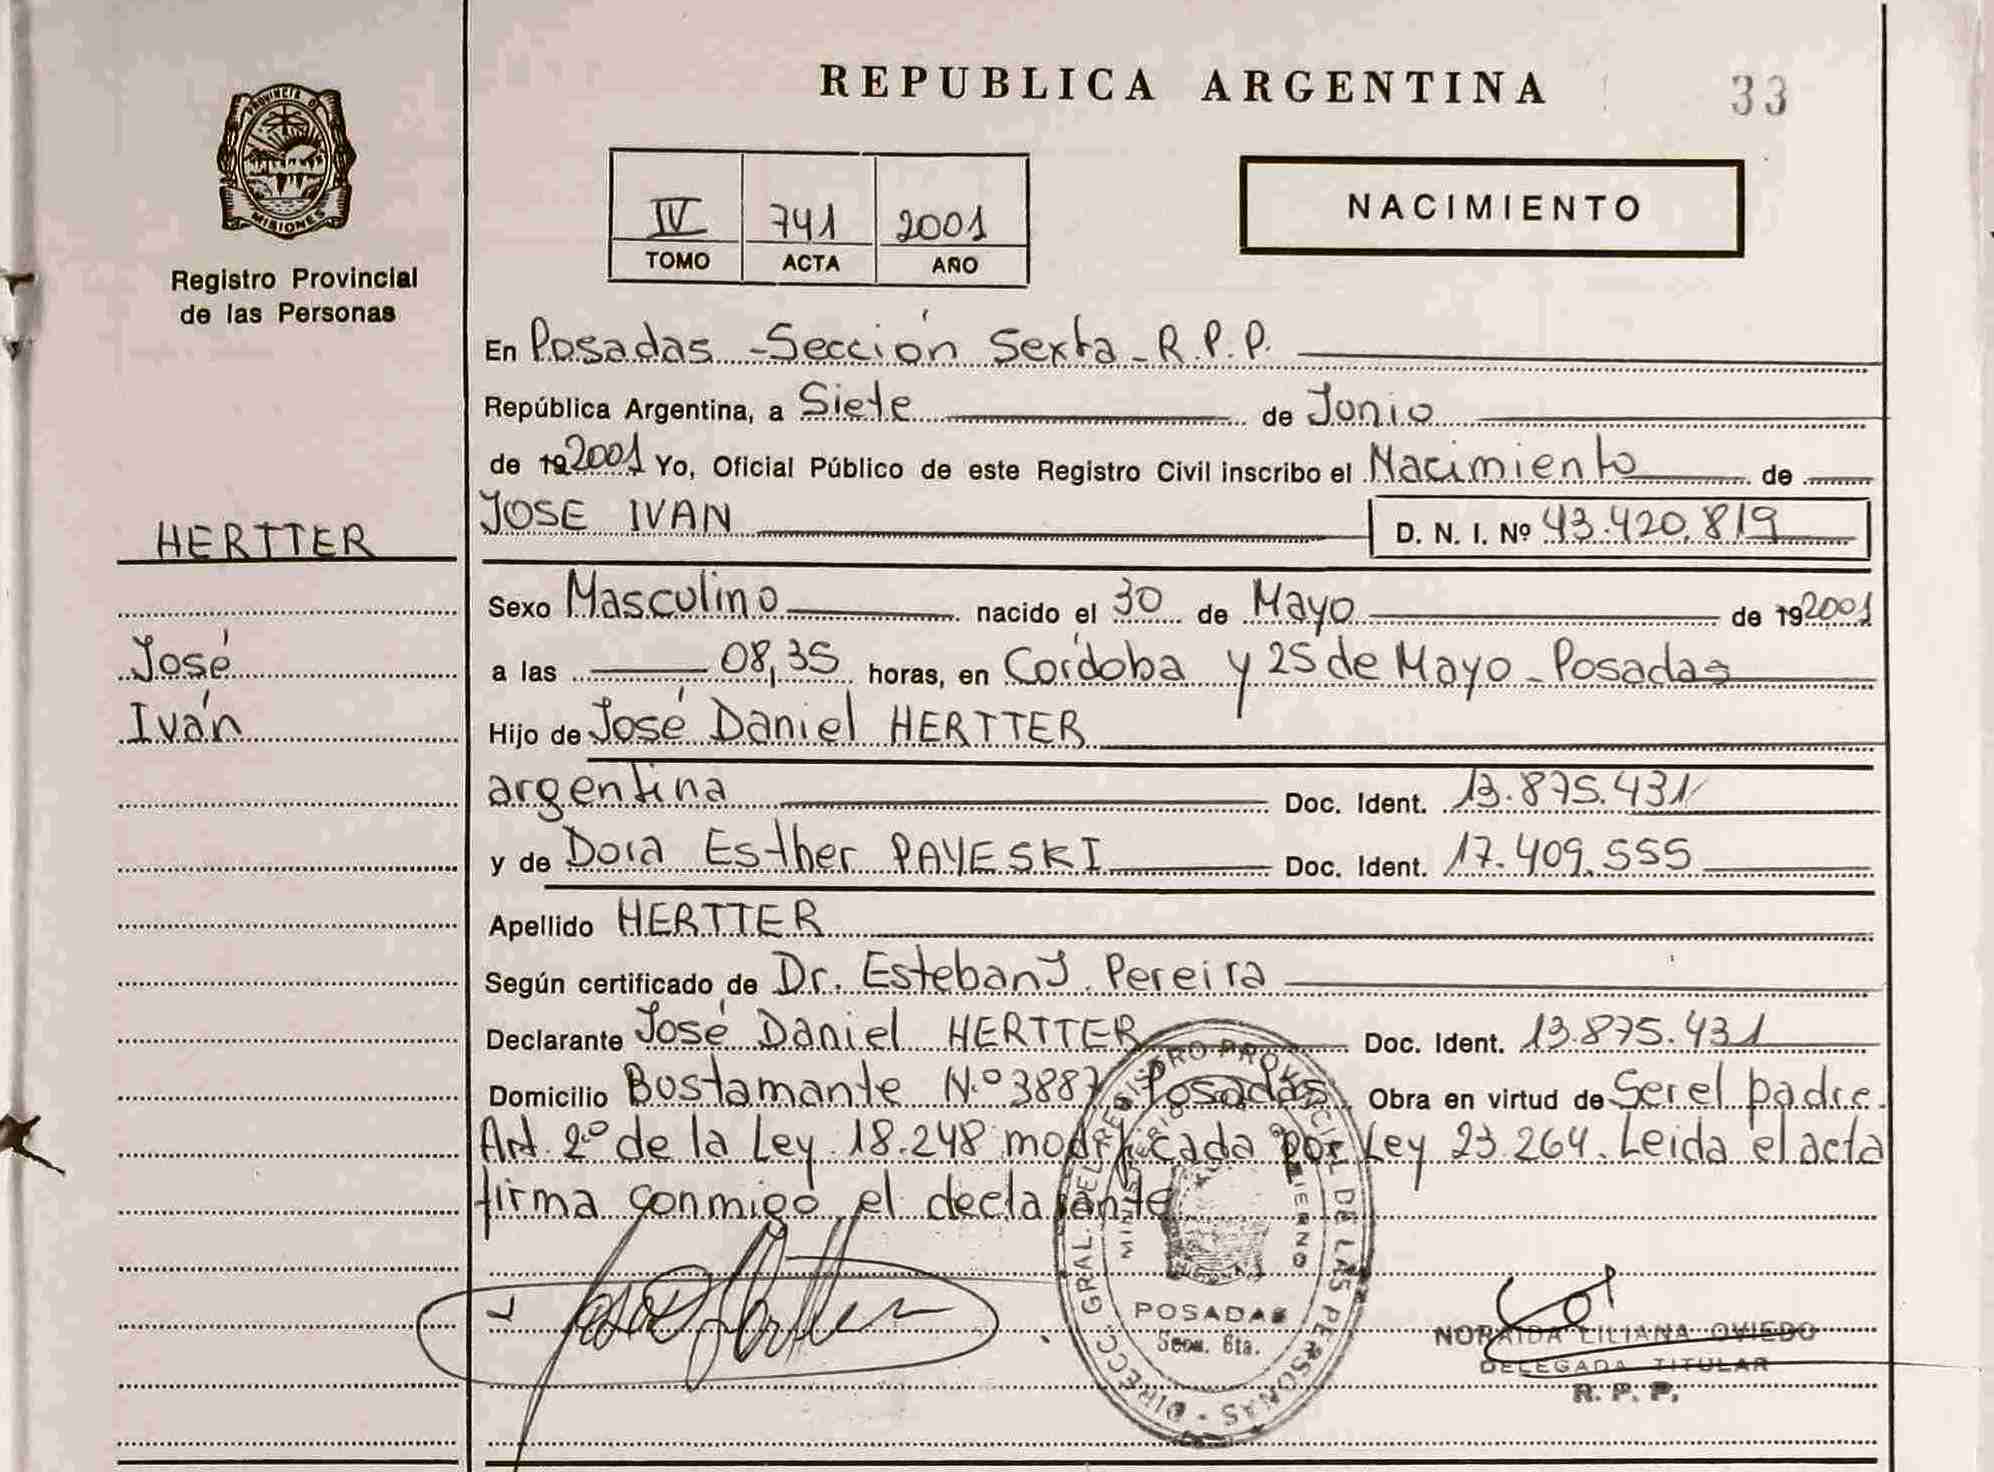 REPUBLICA ARGENTINA
33
PROVINCIA DE
MISIONES
Registro Provincial
de las Personas
IV 741 2001
TOMO ACTA AÑO
NACIMIENTO
En Posadas - Sección Sexta - R.P.P.
República Argentina, a Siete de Junio
de 192001 Yo, Oficial Público de este Registro Civil inscribo el Nacimiento de
HERTTER
JOSE IVAN D. N. I. Nº 43.420.819
Sexo Masculino nacido el 30 de Mayo de 192001
José
a las 08,35 horas, en Cordoba y 25 de Mayo - Posadas
Iván
Hijo de José Daniel HERTTER
argentina Doc. Ident. 13.875.431
y de Dora Esther PAYESKI Doc. Ident. 17.409.555
Apellido HERTTER
Según certificado de Dr. Esteban J. Pereira
Declarante José Daniel HERTTER Doc. Ident. 13.875.431
Domicilio Bustamante N.º 3887 Posadas Obra en virtud de Ser el padre.
Art. 2º de la Ley 18.248 modificada por Ley 23.264. Leida el acta
firma conmigo el declarante
DIRECC. GRAL. DEL REGISTRO PROVINCIAL DE LAS PERSONAS
MINISTERIO DE GOBIERNO
POSADAS
Secc. 6ta.
NORAIDA LILIANA OVIEDO
DELEGADA TITULAR
R. P. P.